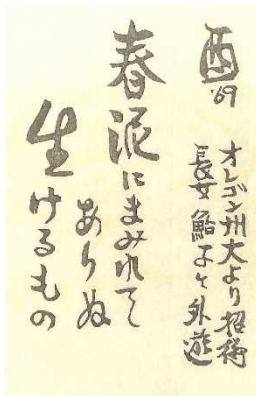 酉
'69
オレゴン州大より招聘
長女鮎子と外遊
春泥にまみれて
ありぬ
生けるもの